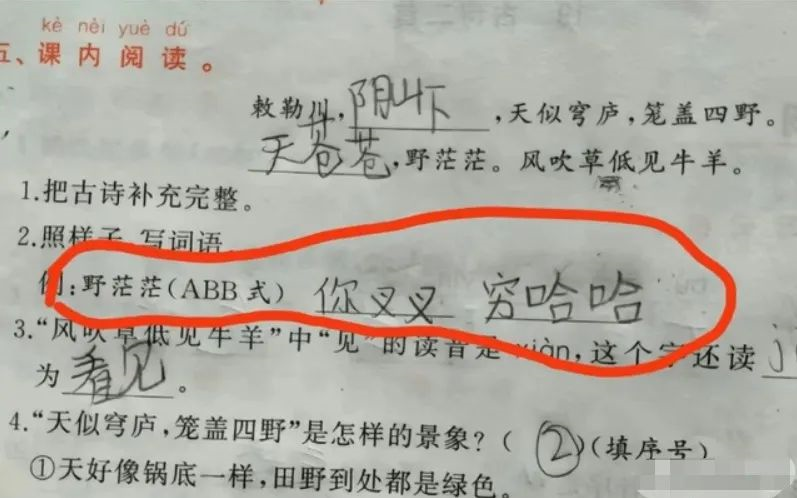 kè nèi yuè dú
五、课内阅读。
敕勒川,阴山下,天似穹庐,笼盖四野。
天苍苍,野茫茫。风吹草低见牛羊。
1.把古诗补充完整。
2.照样子,写词语。
例:野茫茫(ABB式) 你叉叉 穷哈哈
3.“风吹草低见牛羊”中“见”的读音是xiàn,这个字还读
为看见。
4.“天似穹庐,笼盖四野”是怎样的景象?(②)(填序号)
①天好像锅底一样,田野到处都是绿色。